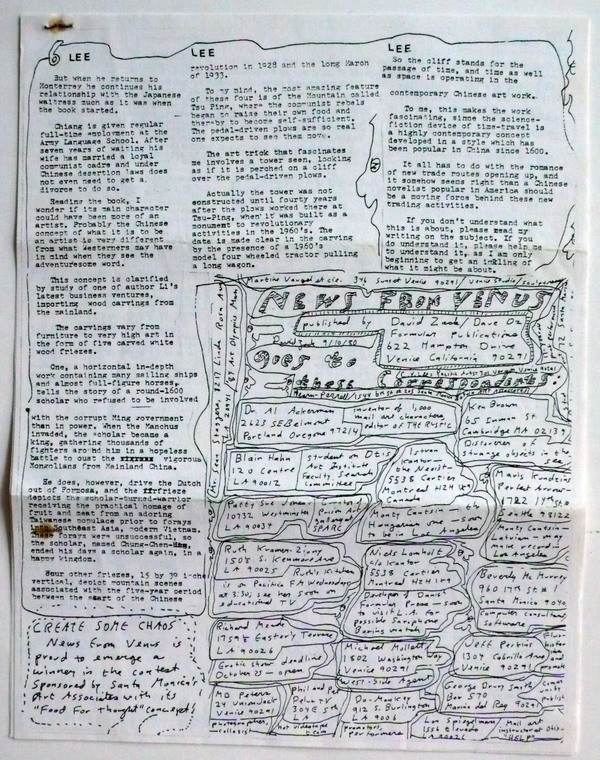 6 LEE
But when he returns to
Monterrey he continues his
relationship with the Japanese
waitress much as it was when
the book started.
Chiang is given regular
full-time employment at the
Army Language School. After
seven years of waiting his
wife has married a loyal
communist cadre and under
Chinese desertion laws does
not even need to get a
divorce to do so.
Reading the book, I
wonder if its main character
could have been more of an
artist. Probably the Chinese
concept of what it is to be
an artist is very different
from what Westerners may have
in mind when they see the
adventuresome word.
This concept is clarified
by study of one of author Li's
latest business ventures,
importing wood carvings from
the mainland.
The carvings vary from
furniture to very high art in
the form of five carved white
wood friezes.
One, a horizontal in-depth
work containing many sailing ships
and almost full-figure horses,
tells the story of a round-1600
scholar who refused to be involved
with the corrupt Ming government
than in power. When the Manchus
invaded, the scholar became a
king, gathering thousands of
fighters around him in a hopeless
battle to oust the xxxxxxx vigorous
Mongolians from Mainland China.
He does, however, drive the Dutch
out of Formosa, and the frieze
depicts the scholar-turned-warrior
receiving the practical homage of
fruit and meat from an adoring
Taiwanese populace prior to forays
into Southeast Asia, modern Vietnam.
These forays were unsuccessful, so
the scholar, named Chung-Chen-
ended his days a scholar again, in a
happy kingdom.
Four other friezes, 15 by 30 inches
vertical, depict mountain scenes
associated with the five-year period
between the start of the Chinese
LEE
revolution in 1928 and the long March
of 1933.
To my mind, the most amazing feature
of these four is of the Mountain called
Tsu Ping, where the communist rebels
began to raise their own food and
thereby to become self-sufficient.
The pedal-driven plows are so real
one expects to see them move.
The art trick that fascinates
me involves a tower seen, looking
as if it is perched on a cliff
over the pedal-driven plows.
Actually the tower was not
constructed until fourty years
after the plows worked there at
Tsu-Ping, when it was built as a
monument to revolutionary
activities in the 1960's. The
date is made clear in the carving
by the presence of a 1960's
model four wheeled tractor pulling
a long wagon.
LEE
So the cliff stands for the
passage of time, and time as well
as space is operating in the
contemporary Chinese art work.
To me, this makes the work
fascinating, since the science-
fiction desire of time-travel is
a highly contemporary concept
developed in a style which has
been popular in China since 1600.
It all has to do with the romance
of new trade routes opening up, and
it somehow seems right than a Chinese
novelist popular in America should
be a moving force behind these new
trading activities.
If you don't understand what
this is about, please read my
writing on the subject. If you
do understand it, please help me
to understand it, as I am only
beginning to get an inkling of
what it might be about.
NEWS FROM VENUS
published by
David Zack / Dave Oz
Formulus Publications
622 Hampton Drive
Venice California 90291
David Zack 9/10/80
goes to
these Correspondents:
Dr Al Ackerman
2623 SE Belmont
Portland Oregon 97214
inventor of 1,000
mail art characters,
editor of The Rustic
Ken Brown
65 Inman St
Cambridge MA 02139
Discoverer of
strange objects in the
Blair Hahn
120 Centre
LA 90012
Student on Otis
Art Institute
Faculty Search
Committee
Istvan Kantor
the Neoist
5538 Cartier
Montreal
Monty Cantsin — the
Hungarian one — soon
to be in Los Angeles
Patty Sue Jones
10732 Westminster
LA 90034
Prison Art
SPARC
Ruth Kramer-Ziony
1508 S. Kenmore Ave
LA 90025
Ruth's Kitchen
is on Pacifica FM Wednesdays
at 3:30, see her soon on
educational TV
Niels Lomholt
c/o Kantor
5538 Cartier
Montreal
Developer of Danish
Formular Press — soon
to visit L.A. for
possible Saxophone
Boring match
Beverly
Santa Monica
computer consultant
software
Richard Meade
1759½ Easterly Terrace
LA 90026
Erotic show deadline
October 25 — open
Michael Mollett
1802 Washington Way
Venice 90291
West Side Agent
Jeff Perkins
1304 Cabrillo Ave
Venice 90291
MB Peters
24 Union Jack
Venice 90291
photographer,
collagist
Phil and Pat
304 E 5th
LA
hot videotape
Da-Monkey
912 S. Burlington
LA 9006
Promoter
Performance
George Drury Smith
Box 570
Marina del Rey 90291
Lon Spiegelman
1556 Elevado
LA 90026
Mail art
instructor at Otis
HELP
CREATE SOME CHAOS
News From Venus is
proud to emerge a
winner in the contest
Sponsored by Santa Monica's
Art Associates with its
"Food for Thought" Concepts